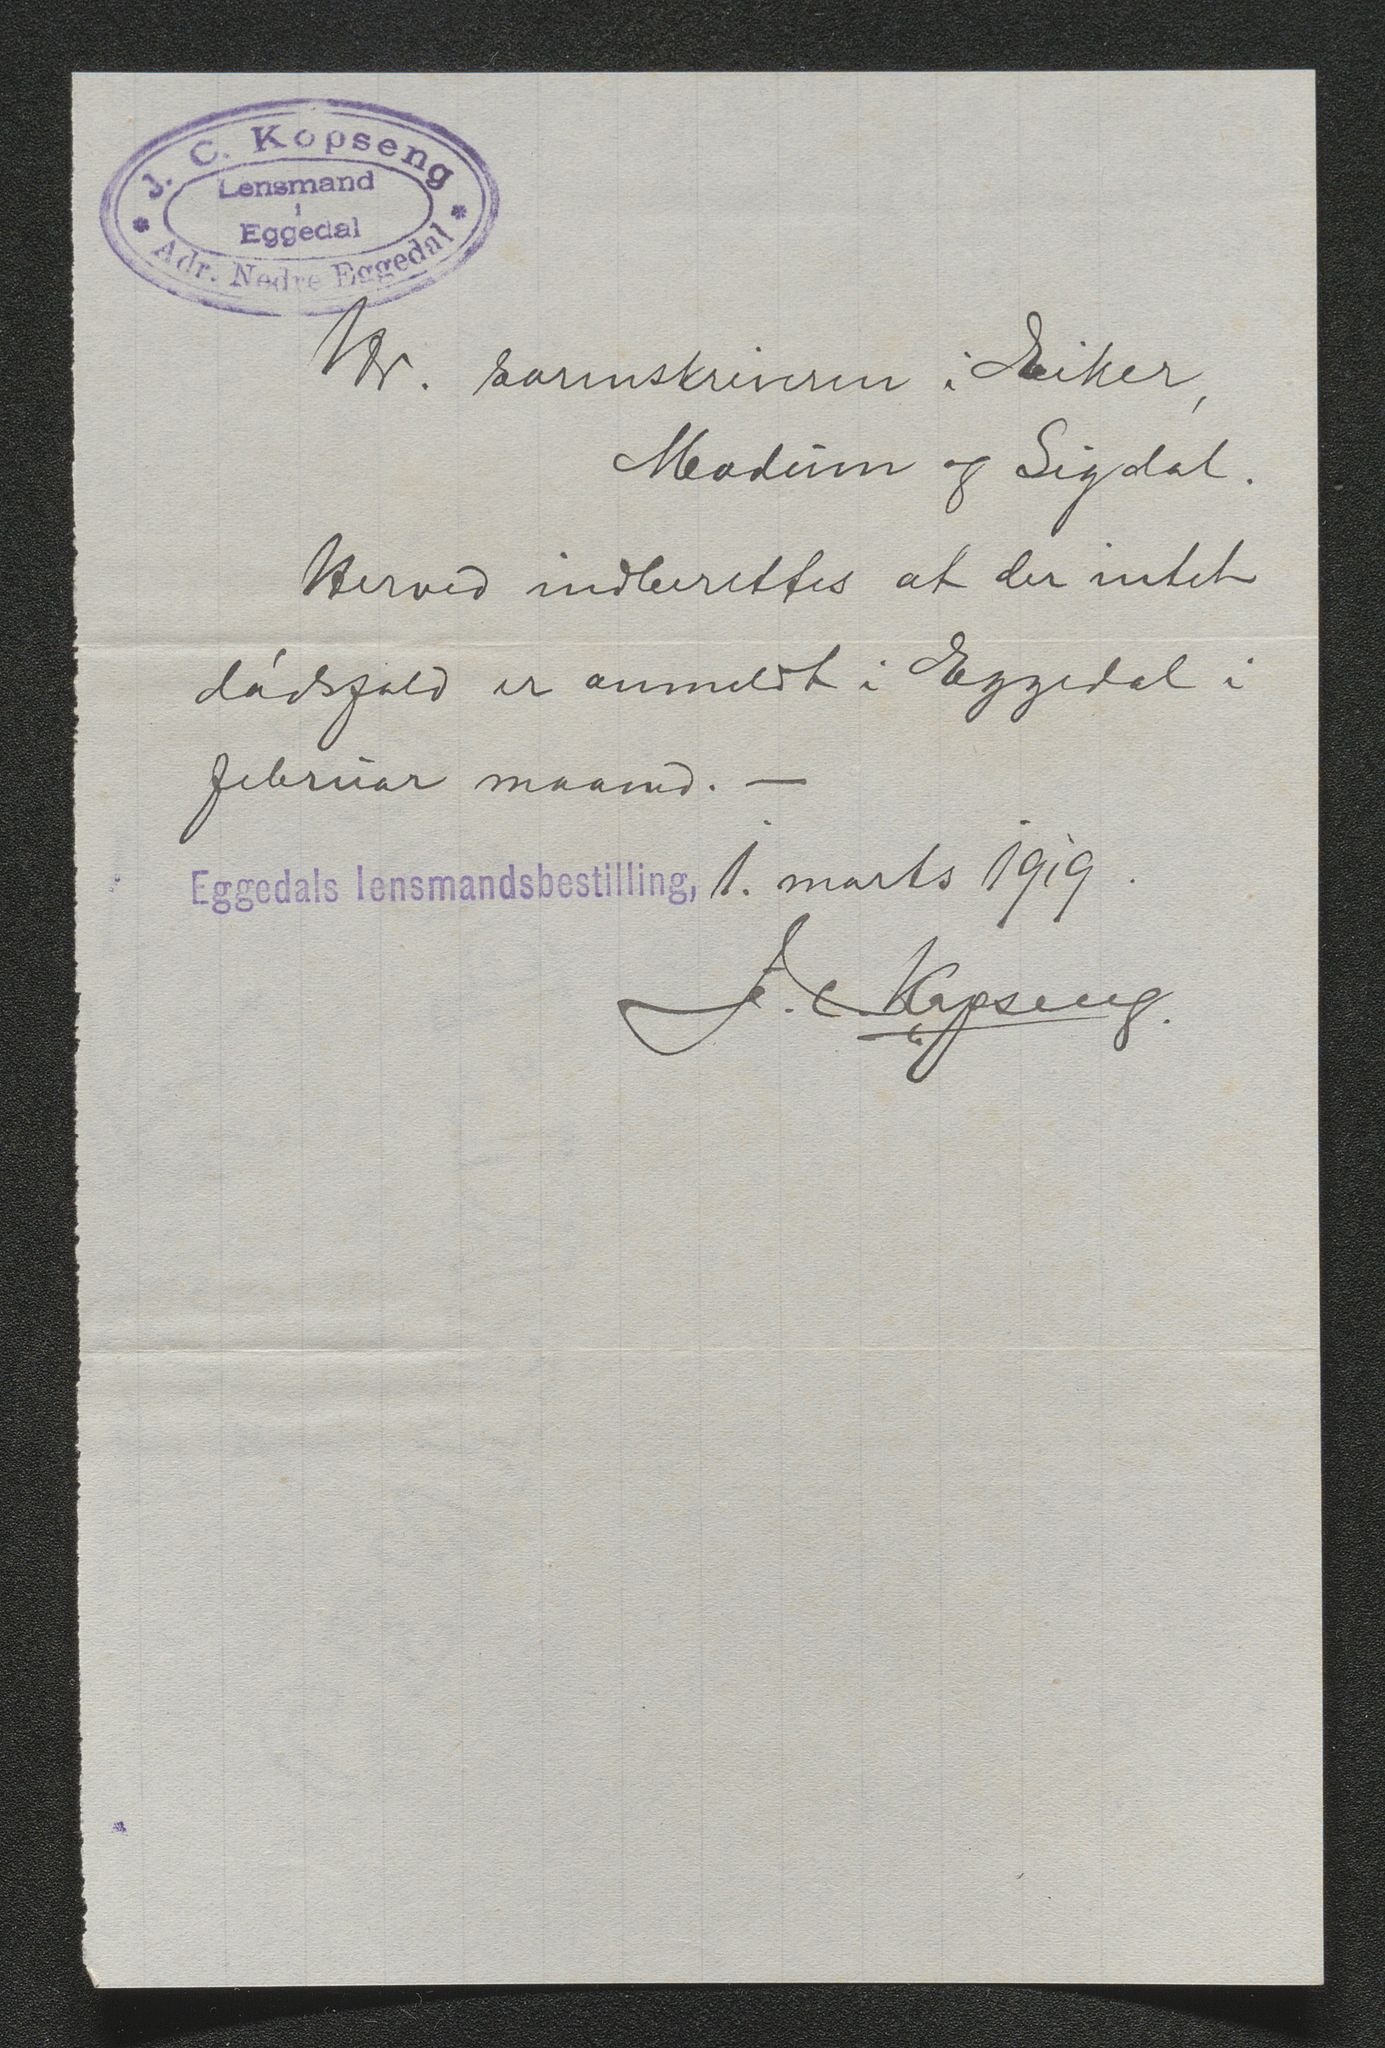 J. C. Kopseng
Lensmand
i
Eggedal
Adr. Nedre Eggedal
Hr. sorenskriveren i Eiker,
Modum og Sigdal.
Herved indberettes at der intet
dødsfald er anmeldt i Eggedal i
februar maaned. —
Eggedals lensmandsbestilling, 1. marts 1919.
J. C. Kopseng.